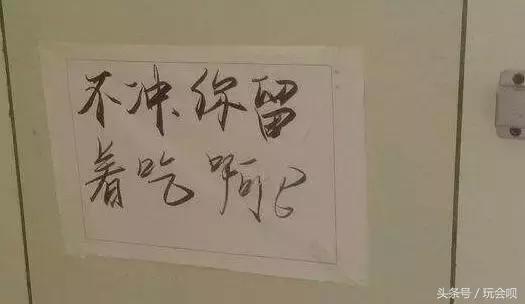 不冲、你留
着吃啊？
头条号 / 玩会呗